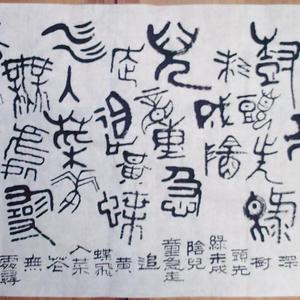 樹頭先綠
未成陰
兒童急
走追黃蝶
飛入菜花
無處尋
深
樹
頭先
綠未成
陰兒
童急走
追
黃
蝶飛
入菜
花
無
處尋